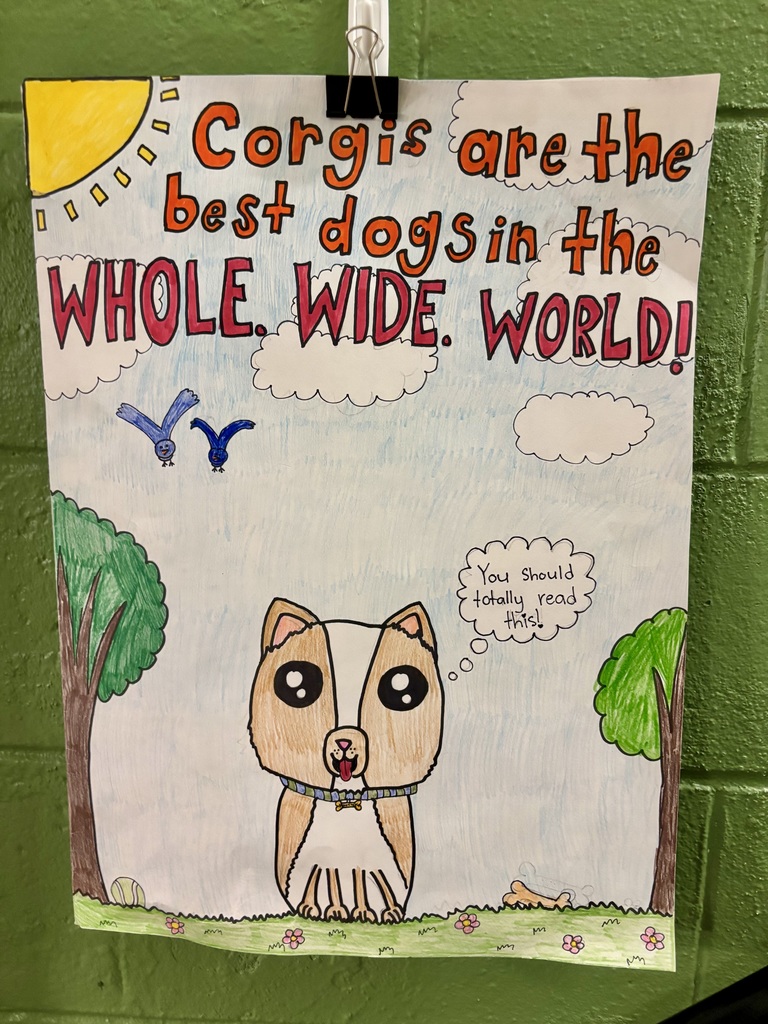 Corgis are the
best dogs in the
WHOLE. WIDE. WORLD!
You should
totally read
this!